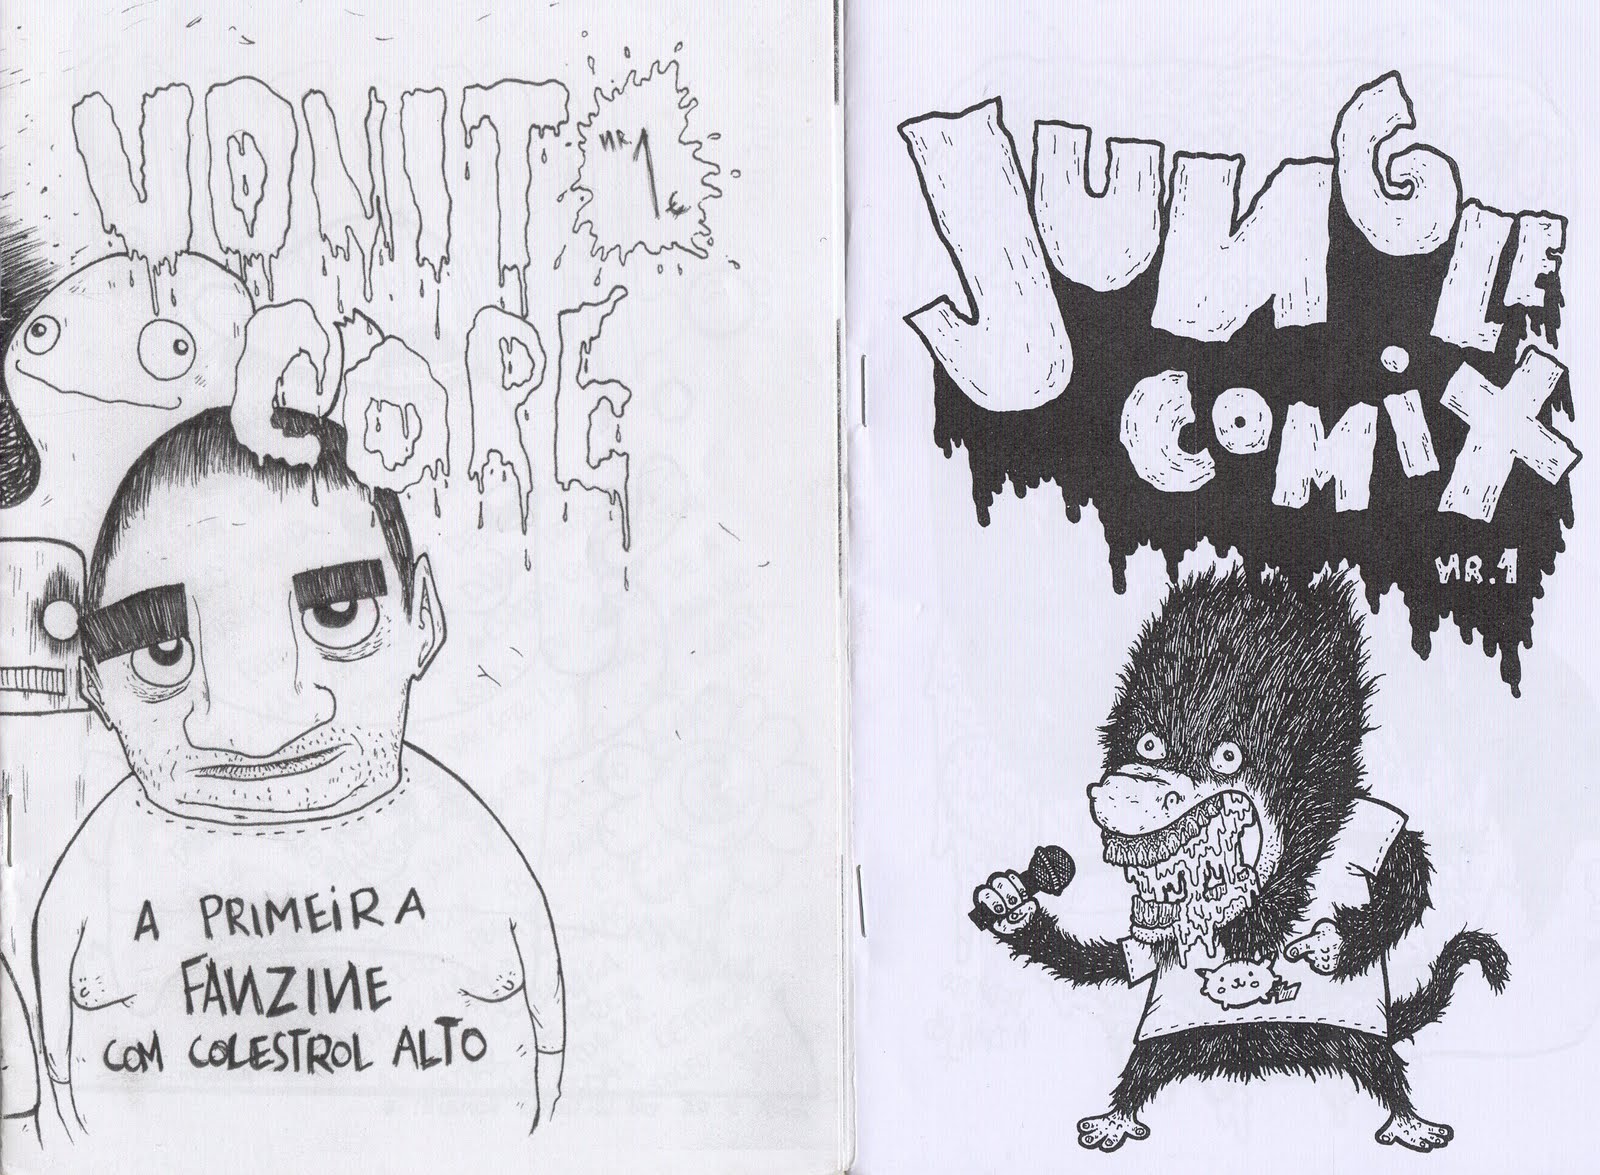 VOMIT
NR. 1
€
CORE
A PRIMEIRA
FANZINE
COM COLESTROL ALTO
JUNGLE
COMIX
NR. 1